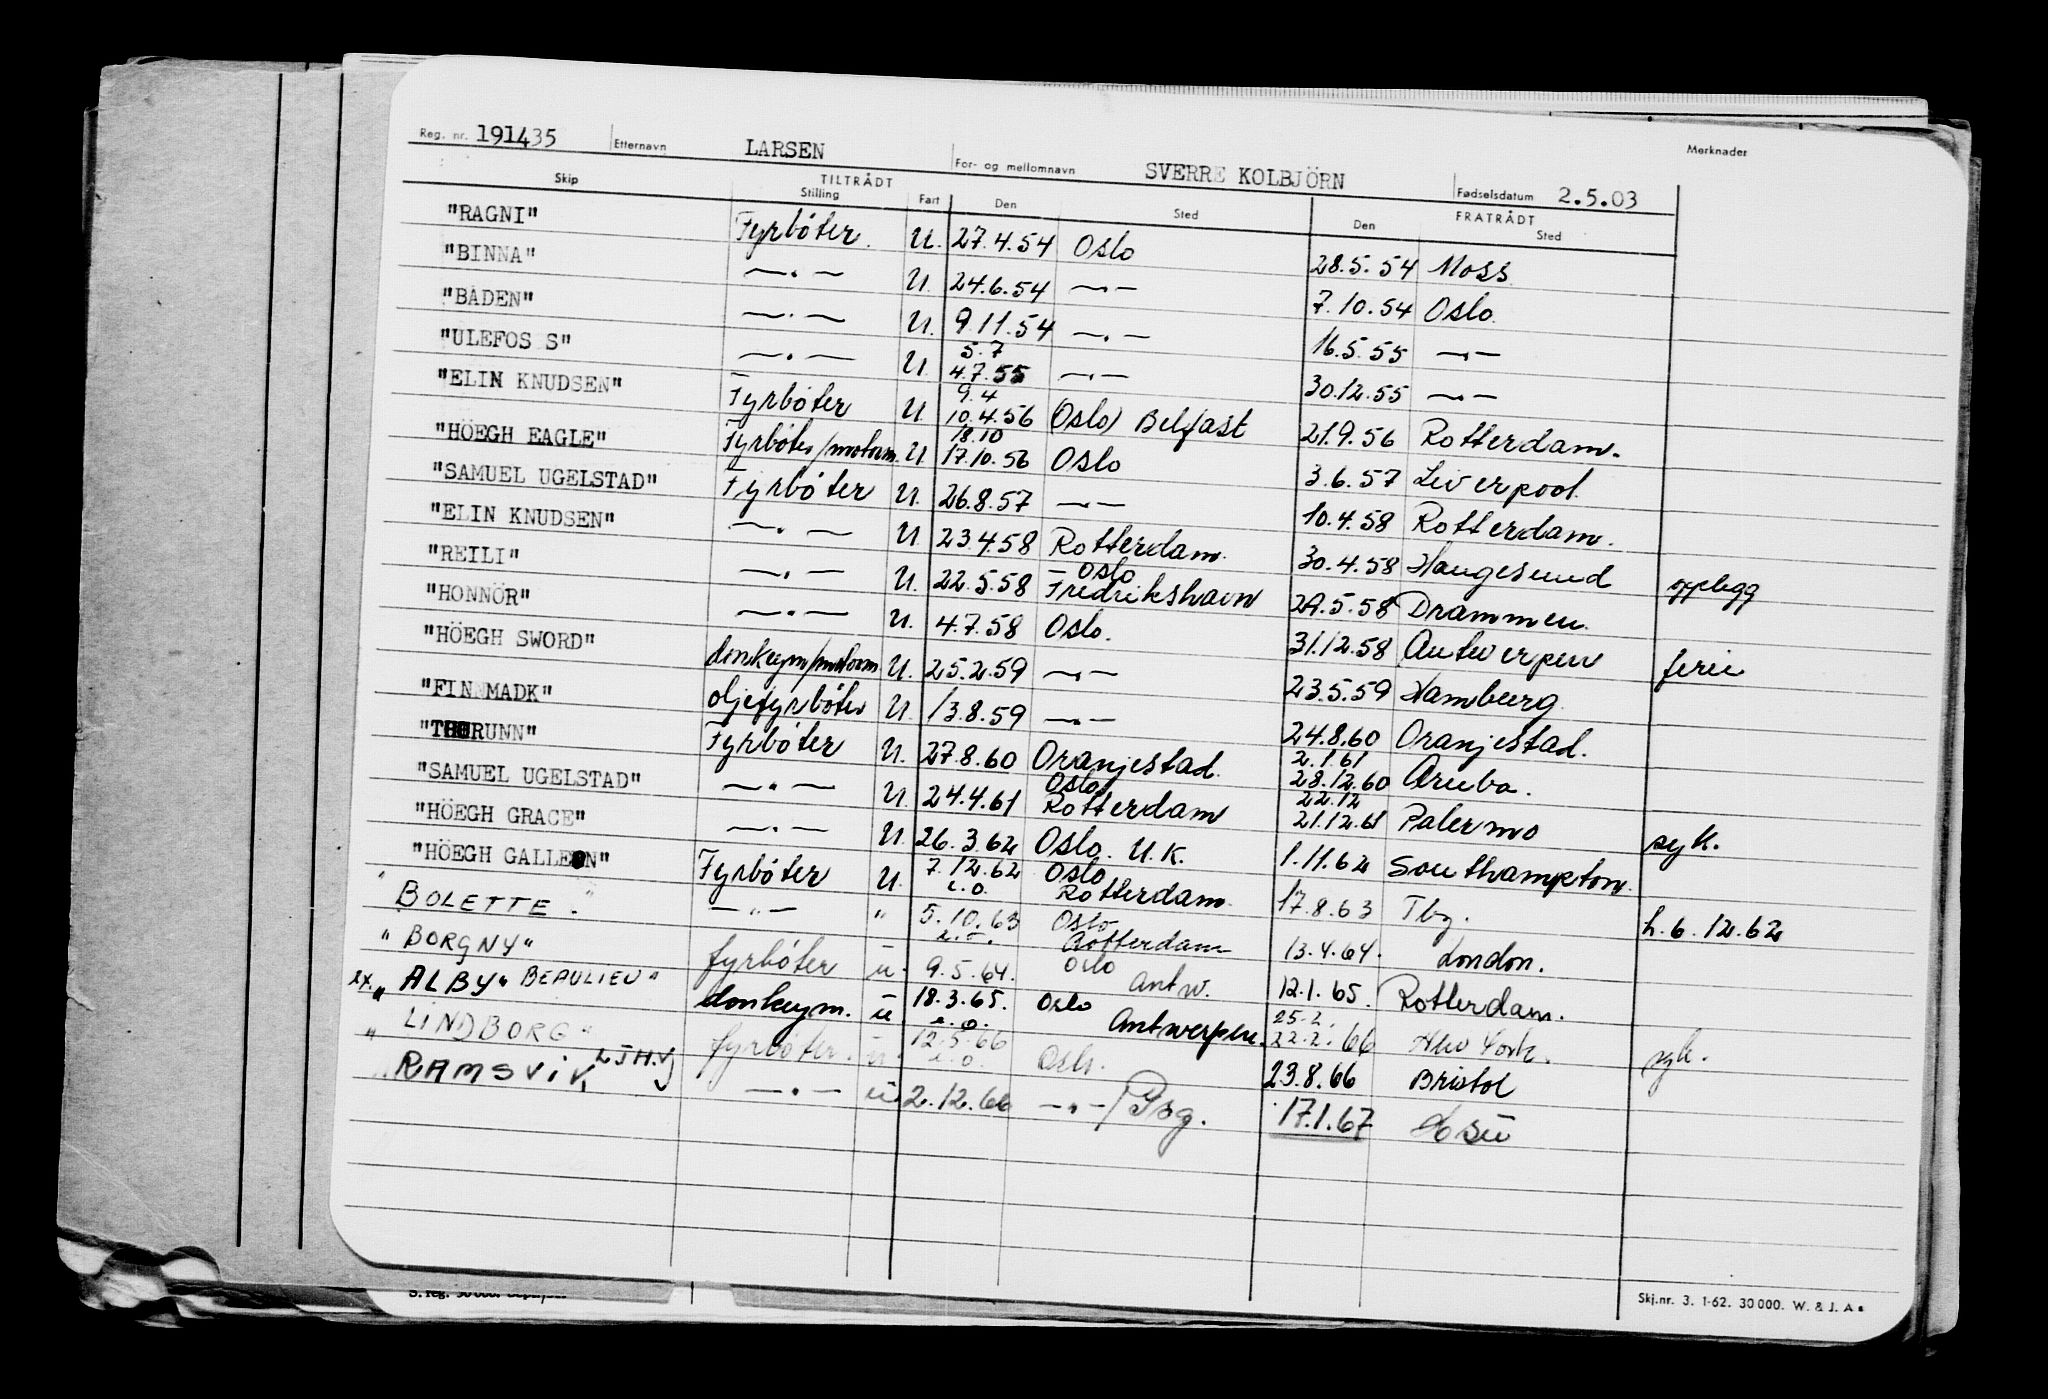 Reg. nr. 191435 Etternavn LARSEN For- og mellomnavn SVERRE KOLBJÖRN Fødselsdatum 2.5.03 Merknader
Skip TILTRÅDT FRATRÅDT
Stilling Fart Den Sted Den Sted
"RAGNI" Fyrbøter. U. 27.4.54 Oslo 28.5.54 Moss
"BINNA" —„— U. 24.6.54 —„— 7.10.54 Oslo.
"BÅDEN" —„— U. 9.11.54 —„— 16.5.55 —„—
5.7
"ULEFOS S" —„— U. 4.7.55 —„— 30.12.55 —„—
9.4
"ELIN KNUDSEN" Fyrbøter U. 10.4.56 (Oslo) Belfast 21.9.56 Rotterdam.
18.10
"HÖEGH EAGLE" Fyrbøter/motorm. U 17.10.56 Oslo 3.6.57 Liverpool.
"SAMUEL UGELSTAD" Fyrbøter U. 26.8.57 —„— 10.4.58 Rotterdam.
"ELIN KNUDSEN" —„— U. 23.4.58 Rotterdam. 30.4.58 Haugesund opplegg
Oslo
"REILI" —„— U. 22.5.58 Fredrikshavn 29.5.58 Drammen.
"HONNÖR" —„— U. 4.7.58 Oslo. 31.12.58 Antwerpen ferie
"HÖEGH SWORD" donkeym/motorm U. 25.2.59 —„— 23.5.59 Hamburg.
"FINNMADK" oljefyrbøter U. 13.8.59 —„— 24.8.60 Oranjestad.
2.1.61
"THORUNN" Fyrbøter U. 27.8.60 Oranjestad. 28.12.60 Aruba.
Oslo 22.12
"SAMUEL UGELSTAD" —„— U. 24.4.61 Rotterdam 21.12.61 Palermo syk.
"HÖEGH GRACE" —„— U. 26.3.62 Oslo. U.K. 1.11.62 Southampton.
7.12.62 Oslo
"HÖEGH GALLEON" Fyrbøter U. i.o. Rotterdam. 17.8.63 Tbg. h. 6.12.62
5.10.63 Oslo
"BOLETTE." —„— " i.o. Rotterdam 13.4.64. London.
"BORGNY" fyrbøter u. 9.5.64. Oslo Antw. 12.1.65. Rotterdam.
18.3.65. Oslo 25.2.
ex. "ALBY" BEAULIEU" donkeym. u i.o. Antwerpen. 22.2.66 New York. syk.
"LINDBORG" fyrbøter. u. 12.5.66 i.o. Oslo. 23.8.66 Bristol
"RAMSVIK LJHV —„— u 2.12.66 —„—/Psg. 17.1.67
Skj.nr. 3. 1-62. 30 000. W. & J. A s